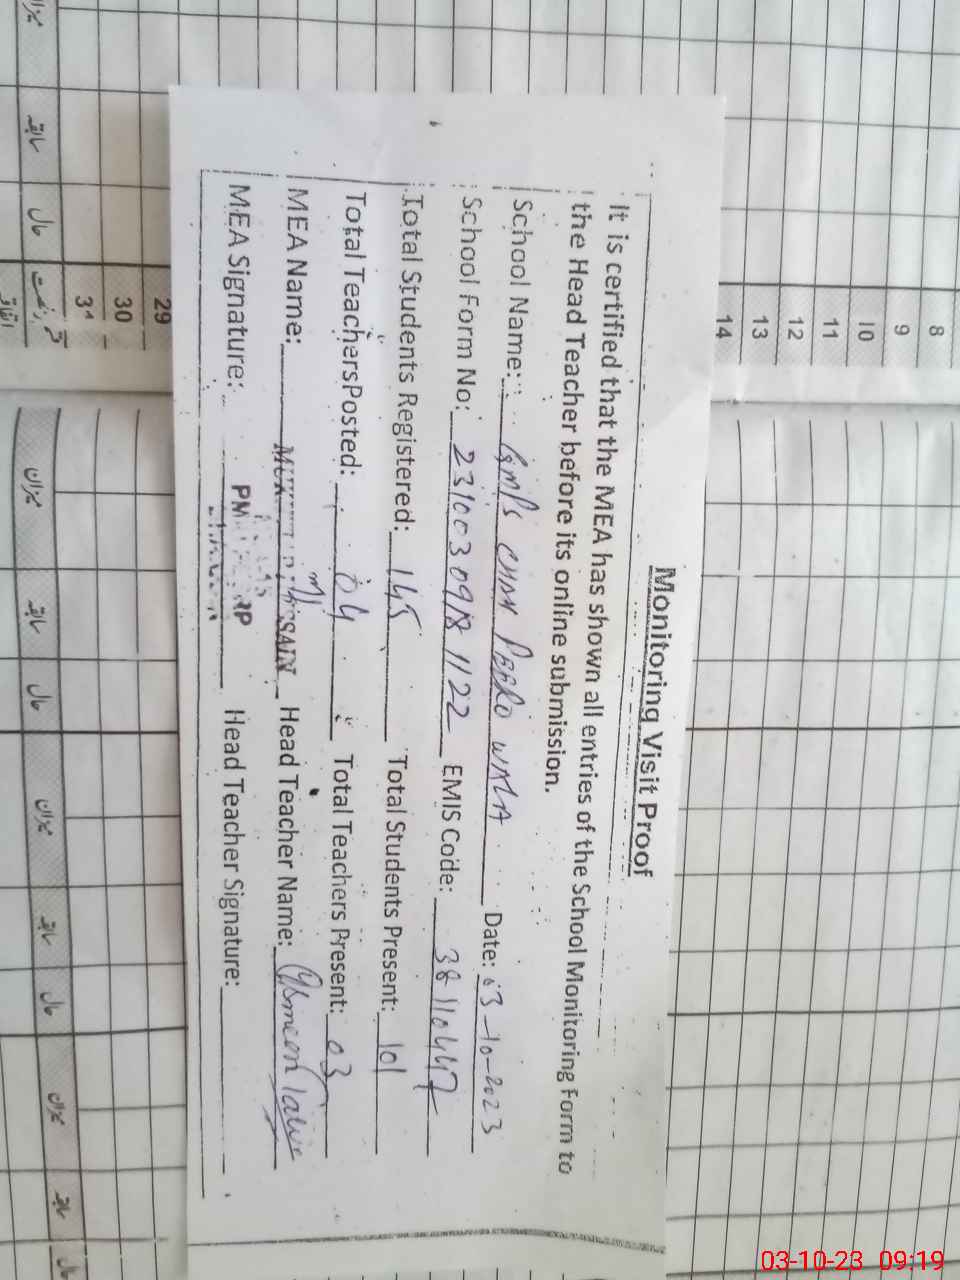 Monitoring Visit Proof
It is certified that the MEA has shown all entries of the School Monitoring Form to
the Head Teacher before its online submission.
School Name: GMPS CHAH PEERO WALA Date: 03-10-2023
School Form No: EMIS Code: 38110447
Total Students Registered: 145 Total Students Present: 101
Total Teachers Posted: 04 Total Teachers Present: 03
MEA Name: HUSSAIN Head Teacher Name: Yasmeen
MEA Signature: Head Teacher Signature:
8
9
10
11
12
13
14
29
30
31
میزان
سابقہ
حال
میزان
سابقہ
حال
میزان
سابقہ
حال
میزان
سابقہ
حال
03-10-23 09:19